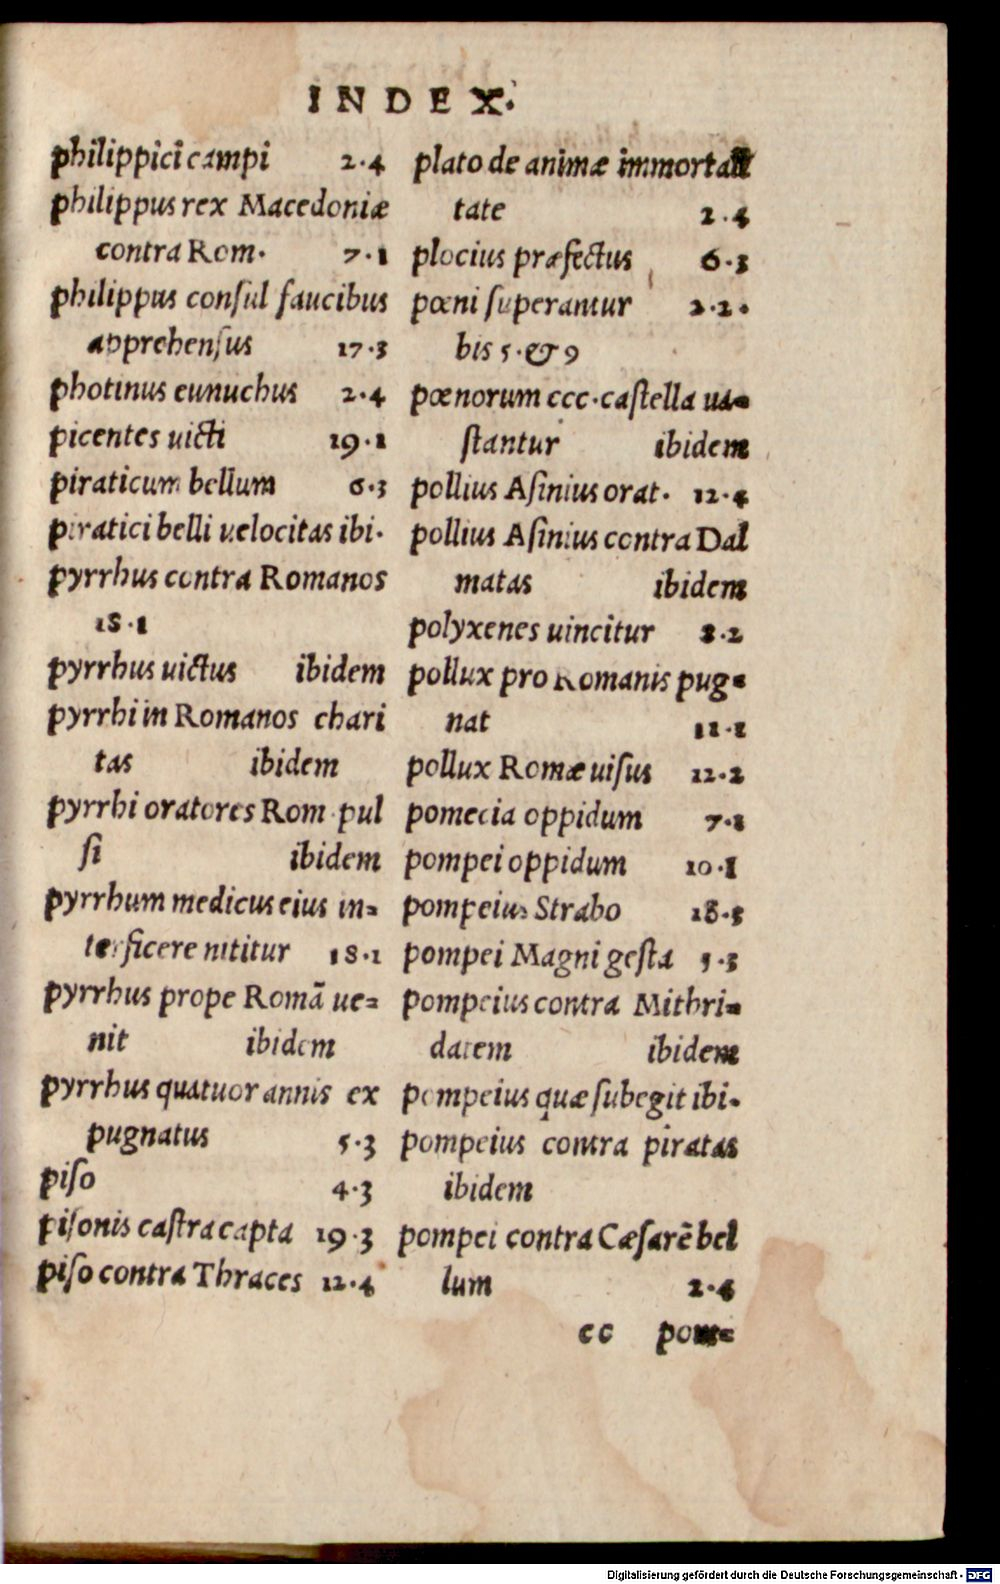 INDEX.
philippici campi 2.4
philippus rex Macedoniæ
contra Rom. 7.1
philippus consul faucibus
apprehensus 17.3
photinus eunuchus 2.4
picentes uicti 19.1
piraticum bellum 6.3
piratici belli velocitas ibi.
pyrrhus contra Romanos
18.1
pyrrhus uictus ibidem
pyrrhi in Romanos chari
tas ibidem
pyrrhi oratores Rom. pul
si ibidem
pyrrhum medicus eius in=
terficere nititur 18.1
pyrrhus prope Romā ue=
nit ibidem
pyrrhus quatuor annis ex
pugnatus 5.3
piso 4.3
pisonis castra capta 19.3
piso contra Thraces 12.4
plato de animæ immortali
tate 2.4
plocius præfectus 6.3
pœni superantur 2.2.
bis 5.& 9
pœnorum ccc.castella ua=
stantur ibidem
pollius Asinius orat. 12.4
pollius Asinius contra Dal
matas ibidem
polyxenes uincitur 8.2
pollux pro Romanis pug=
nat 11.1
pollux Romæ uisus 12.2
pomecia oppidum 7.1
pompei oppidum 10.1
pompeius Strabo 18.3
pompei Magni gesta 5.3
pompeius contra Mithri=
datem ibidem
pompeius quæ subegit ibi.
pompeius contra piratas
ibidem
pompei contra Cæsarē bel
lum 2.4
cc pom=
Digitalisierung gefördert durch die Deutsche Forschungsgemeinschaft - DFG